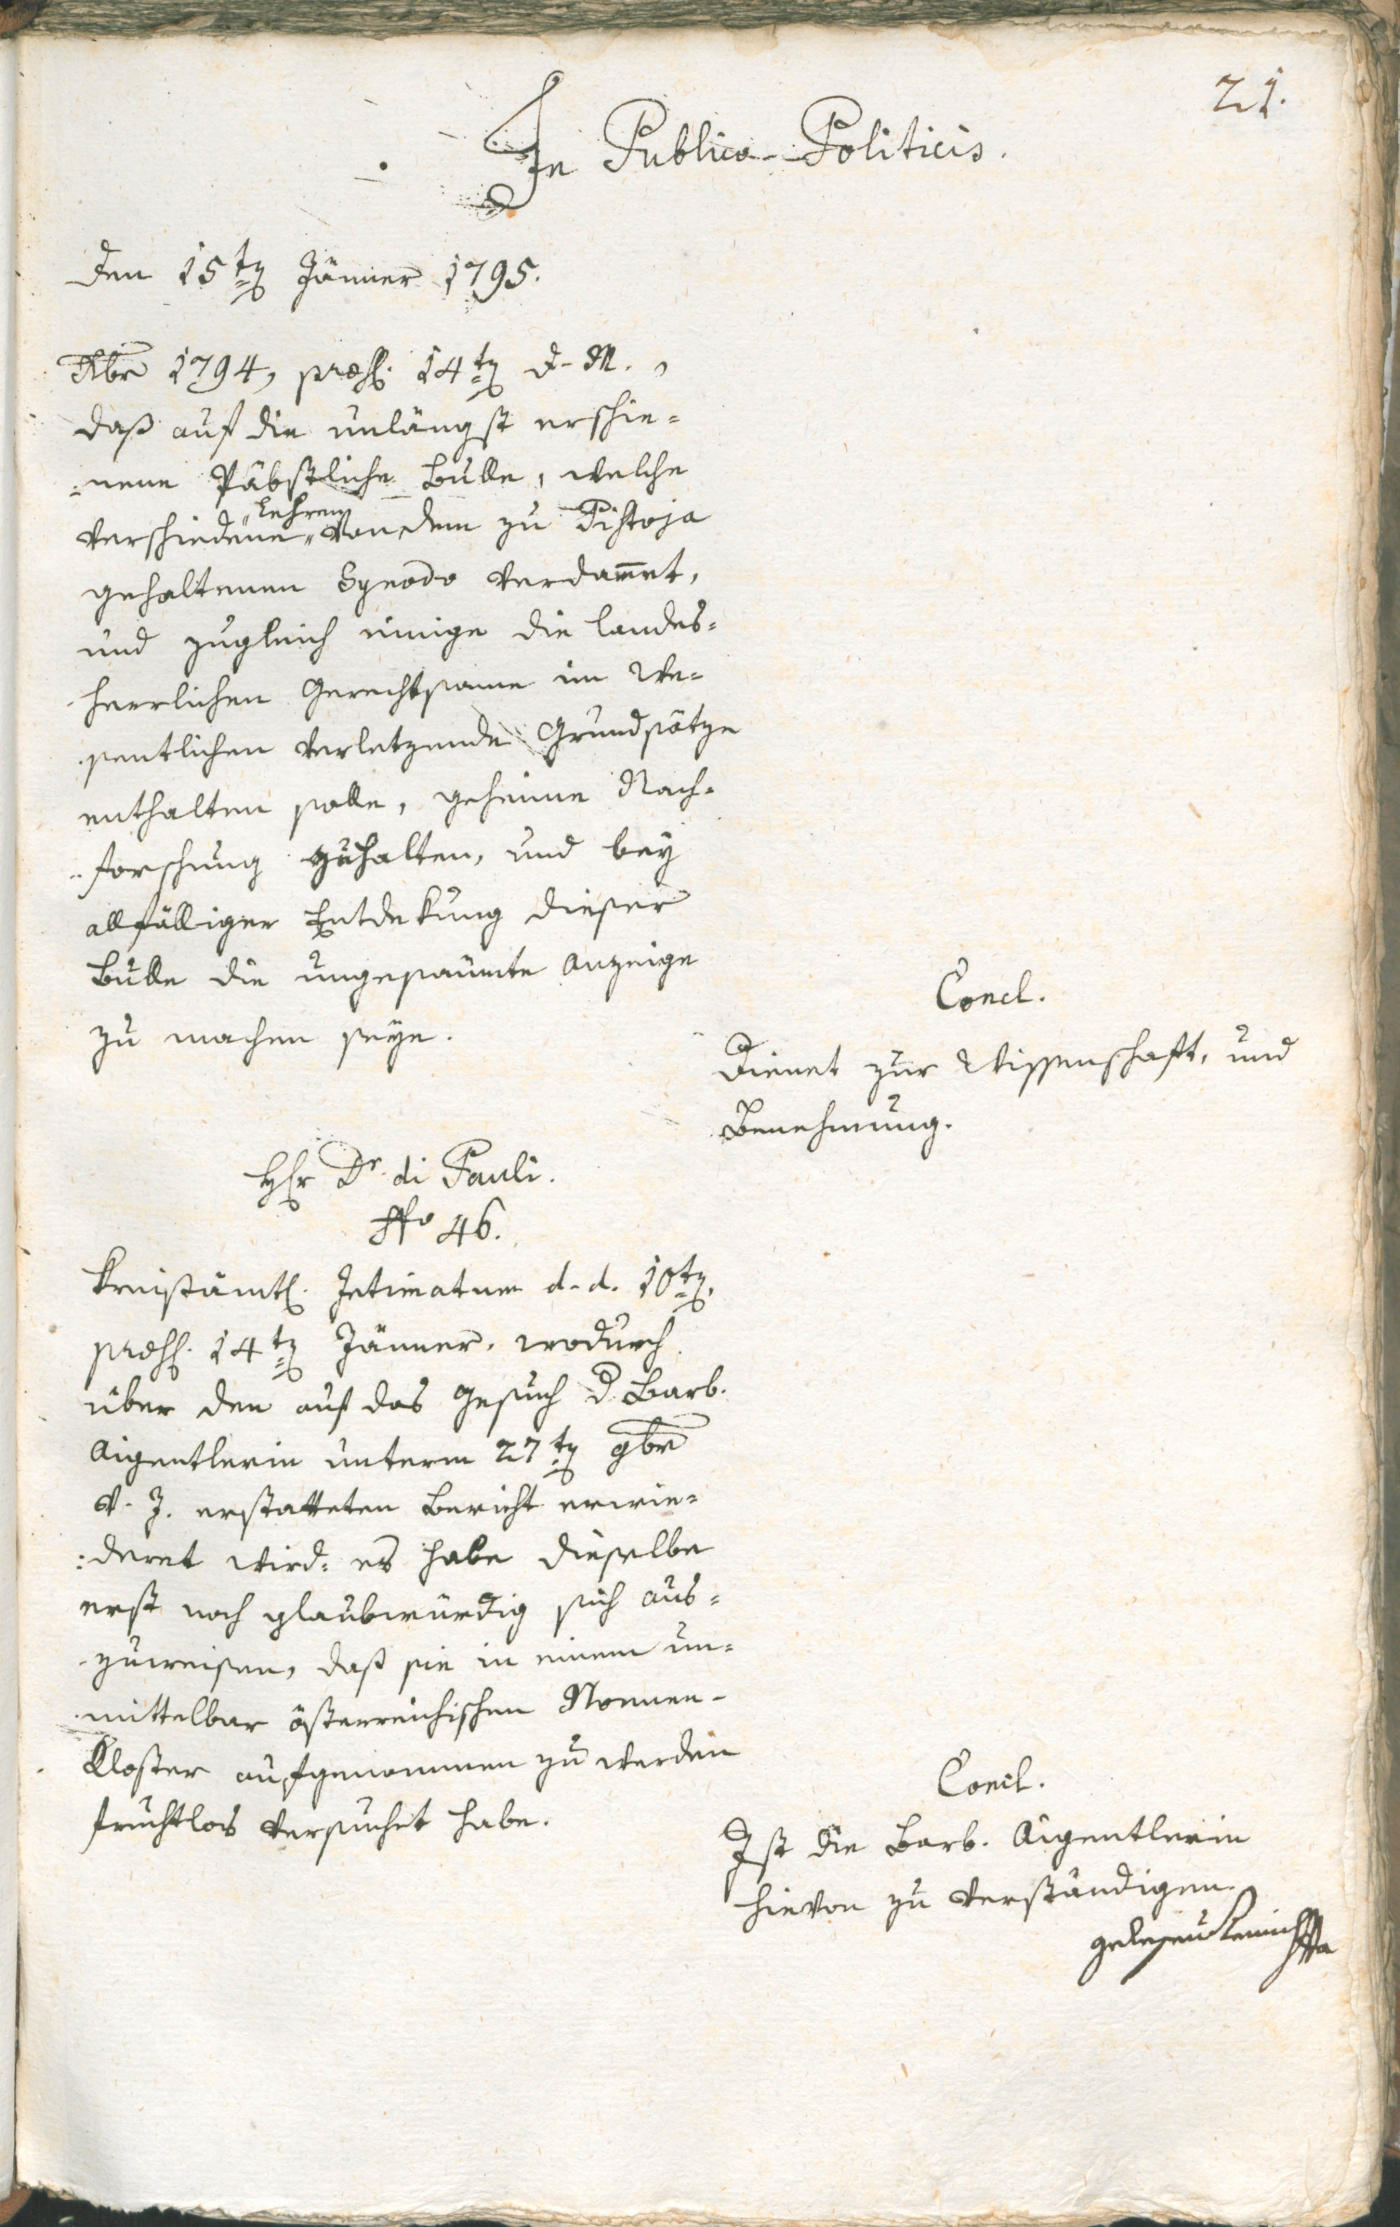 21.
In Publico-Politicis.
Den 15ten Jänner 1795.
Xbr 1794, praes. 14ten d. M.,
daß auf die unlängst erschie=
=nene Päbstliche Bulle, welche
verschiedene Lehren von dem zu Pistoja
gehaltenen Synodo verdammt,
und zugleich einige die landes=
herrlichen Gerechtsame im We=
sentlichen verletzende Grundsätze
enthalten solle, geheime Nach=
forschung zuhalten, und bey
allfälliger Entdekung dieser
Bulle die ungesäumte Anzeige
zu machen seye.
Concl.
Dienet zur Wissenschaft, und
Benehmung.
Hr Dr di Pauli.
No 46.
Kreisämtl. Intimatum d. d. 10ten,
praes. 14ten Jänner, wodurch
über den auf das Gesuch d. Barb.
Aigentlerin unterm 27ten 9br
v. J. erstatteten Bericht erwie=
=deret wird: es habe dieselbe
erst noch glaubwürdig sich aus=
zuweisen, daß sie in einem un=
mittelbar österreichischen Nonnen-
Kloster aufgenommen zu werden
fruchtlos versuchet habe.
Concl.
Ist die Barb. Aigentlerin
hievon zu verständigen.
gelesen